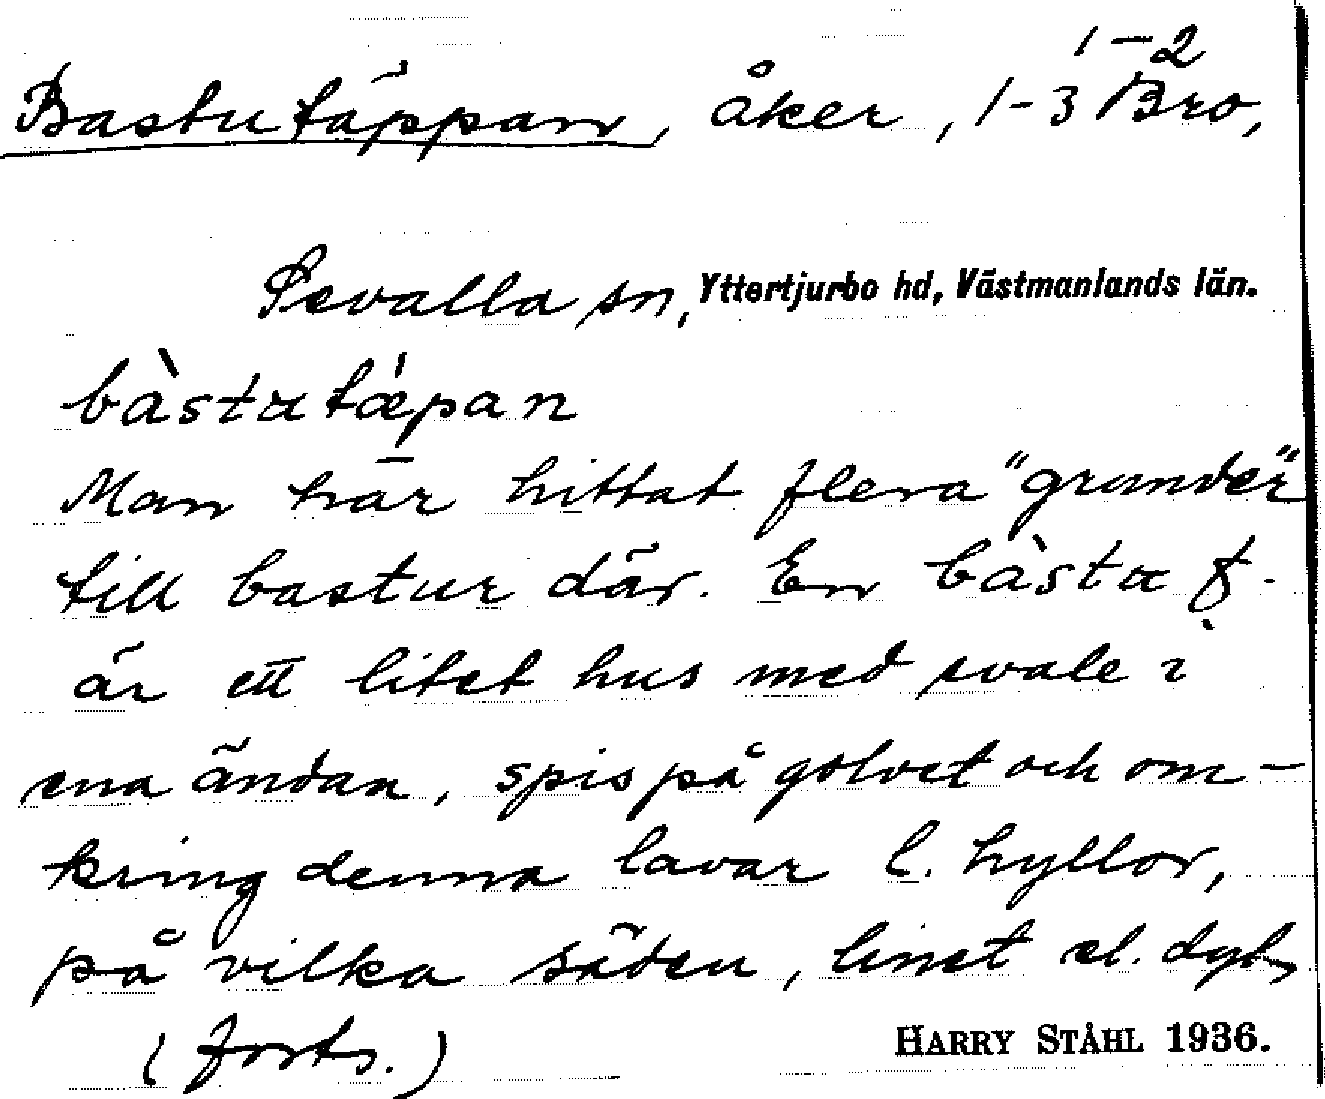 1-2
Bastutäppan, åker, 1-3 Bro,
Sevalla sn, Yttertjurbo hd, Västmanlands län.
bàstatǽpan
Man har hittat flera "grunder"
till bastur där. En bàsta f.
är ett litet hus med svale i
ena ändan, spis på golvet och om-
kring denna lavar l. hyllor,
på vilka säden, linet el. dyl.
(forts.) HARRY STÅHL 1936.